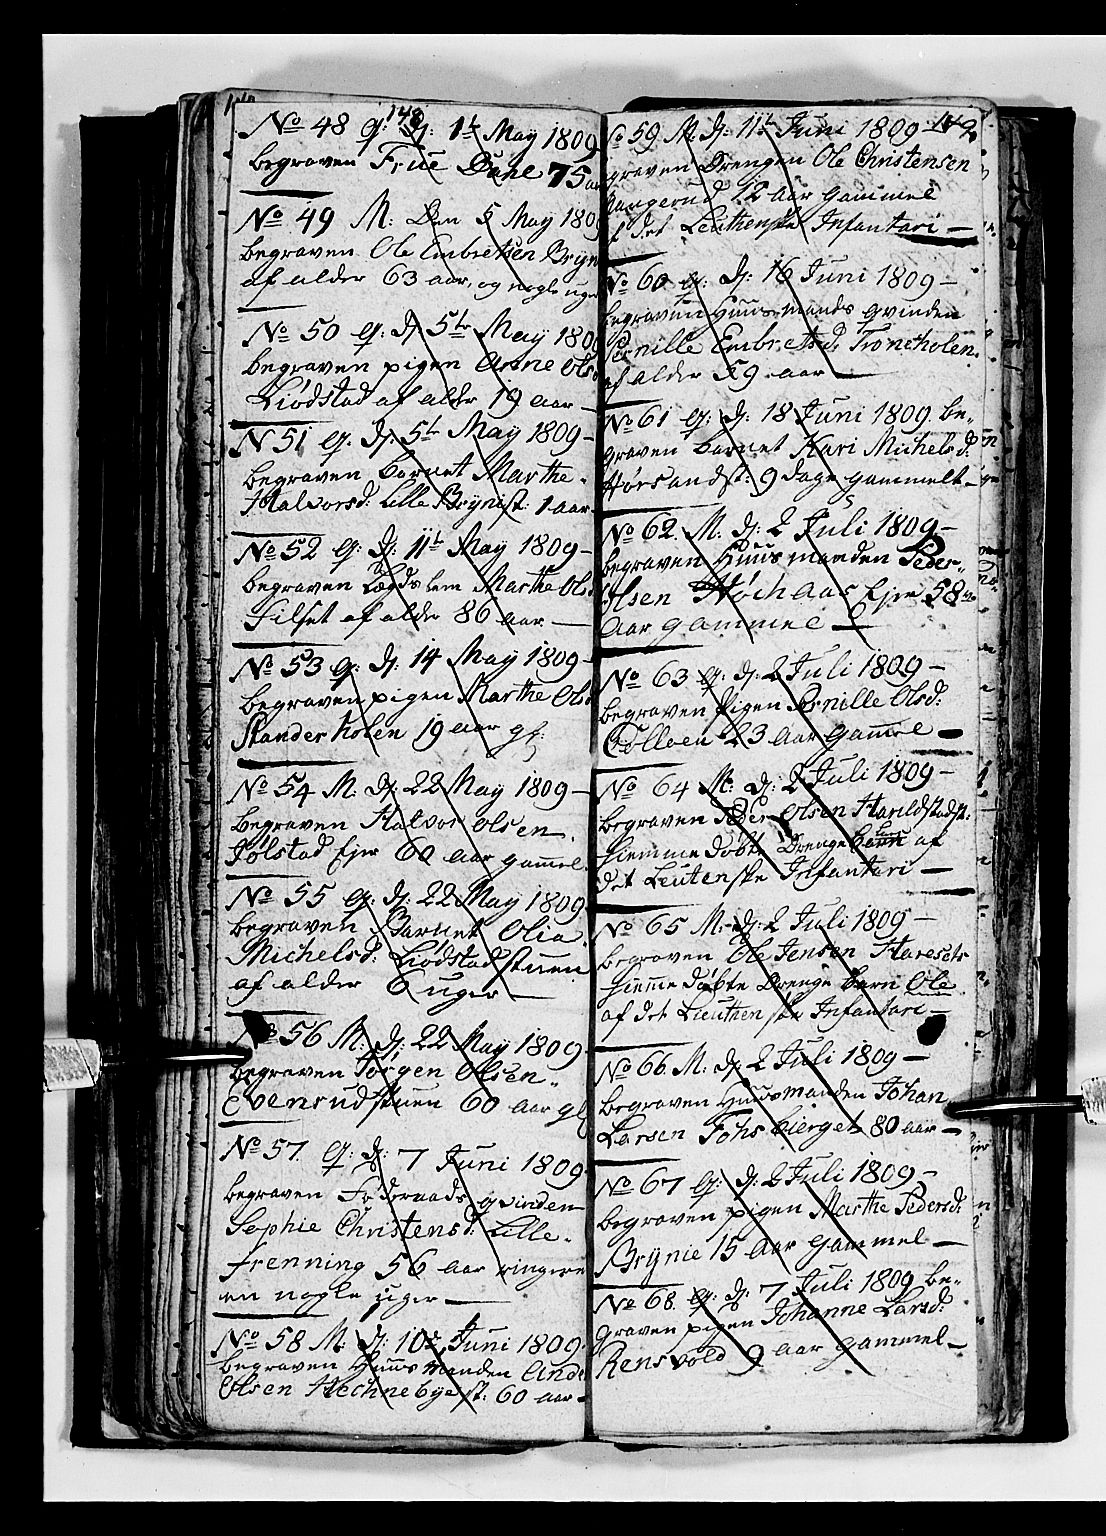 148
No 48 Q: d: 1t May 1809
begraven Frue Dahl 75 aar
No 49 M: Den 5 May 1809
begraven Ole Embretsen Bryn
af alder 63 aar, og nogle uger
No 50 Q: d: 5te May 1809
begraven pigen Anne Olsd
Liødstad af alder 19 aar —
N 51 Q. d: 5t May 1809 —
begraven barnet Marthe
Halvorsd: Lille Brynist: 1 aar
No 52 Q: d: 11t May 1809 —
begraven Lægds lem Marthe Olsd
Filset af alder 86 aar —
No 53 Q: d: 14 May 1809 —
begraven pigen Marthe Olsd
Standerholen 19 aar gl:
No 54 M: d: 22 May 1809 —
begraven Halvor Olsen
Jølstad Ejer 60 aar gamel
No 55 Q: d: 22 May 1809
begraven Barnet Olia
Michelsd: Liødstadstuen
af alder 6 uger —
No 56 M: d: 22 May 1809
begraven Jørgen Olsen
Evensrudstuen 60 aar gl
No 57 Q: d: 7 Juni 1809
begraven Føderaads qvinden
Sophie Christensd: Lille-
frenning 56 aar ringere
en nogle uger —
No 58 M: d: 10de Juni 1809
begraven Huusmanden Ande
Olsen Hechnebye st: 60 aar —
149
No 59 M: d: 11t Juni 1809 —
graven Drengen Ole Christensen
12 aar gammel
af det Leuthenske Infantari —
No 60 Q: d: 16 Juni 1809 —
begraven Huusmands qvinden
Pernille Embretsd: Troneholen
af alder 59 aar —
No 61 Q: d: 18 Juni 1809 be-
graven barnet Kari Michelsd:
Hørsandst: 9 dage gammelt —
No 62 M: d: 2 Juli 1809 —
begraven Huusmanden Peder
Olsen Høchaas Ejer 58
Aar gammel —
No 63 Q: d: 2 Juli 1809 —
begraven Pigen Pernille Olsd:
23 Aar gamel —
No 64 M: d: 2 Juli 1809 —
begraven Peder Olsen Harildstadst:
hiemme døbte Drenge barn af
det Leutenske Infantari —
No 65 M: d: 2 Juli 1809 —
begraven Ole Jensen Haresets
hiemme døbte Drenge barn Ole
af det Lieuthenske Infantari —
No 66 M: d: 2 Juli 1809 —
begraven Huusmanden Johan
Larsen Fohs bierget 80 aar —
No 67 Q: d: 2 Juli 1809 —
begraven pigen Marthe Pedersd:
Brynie 15 Aar gammel —
No 68 Q: d: 7 Juli 1809 be-
graven pigen Johanne Larsd:
Rensvold 9 aar gammel —